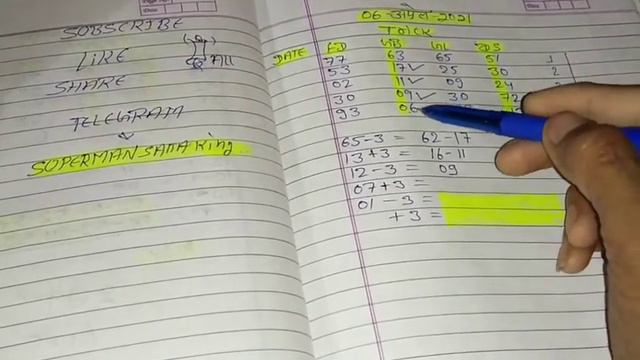 SUBSCRIBE
LIKE All
SHARE
TELEGRAM
SUPERMANSATAKing
06-अप्रैल-2021
TRICK
DATE FD GB GL DS
77 63 65 51 1
53 17✓ 25 30 2
02 11✓ 09 24
30 09✓ 30 72
93 06
65-3= 62-17
13+3= 16-11
12-3= 09
07+3=
01-3=
+3=